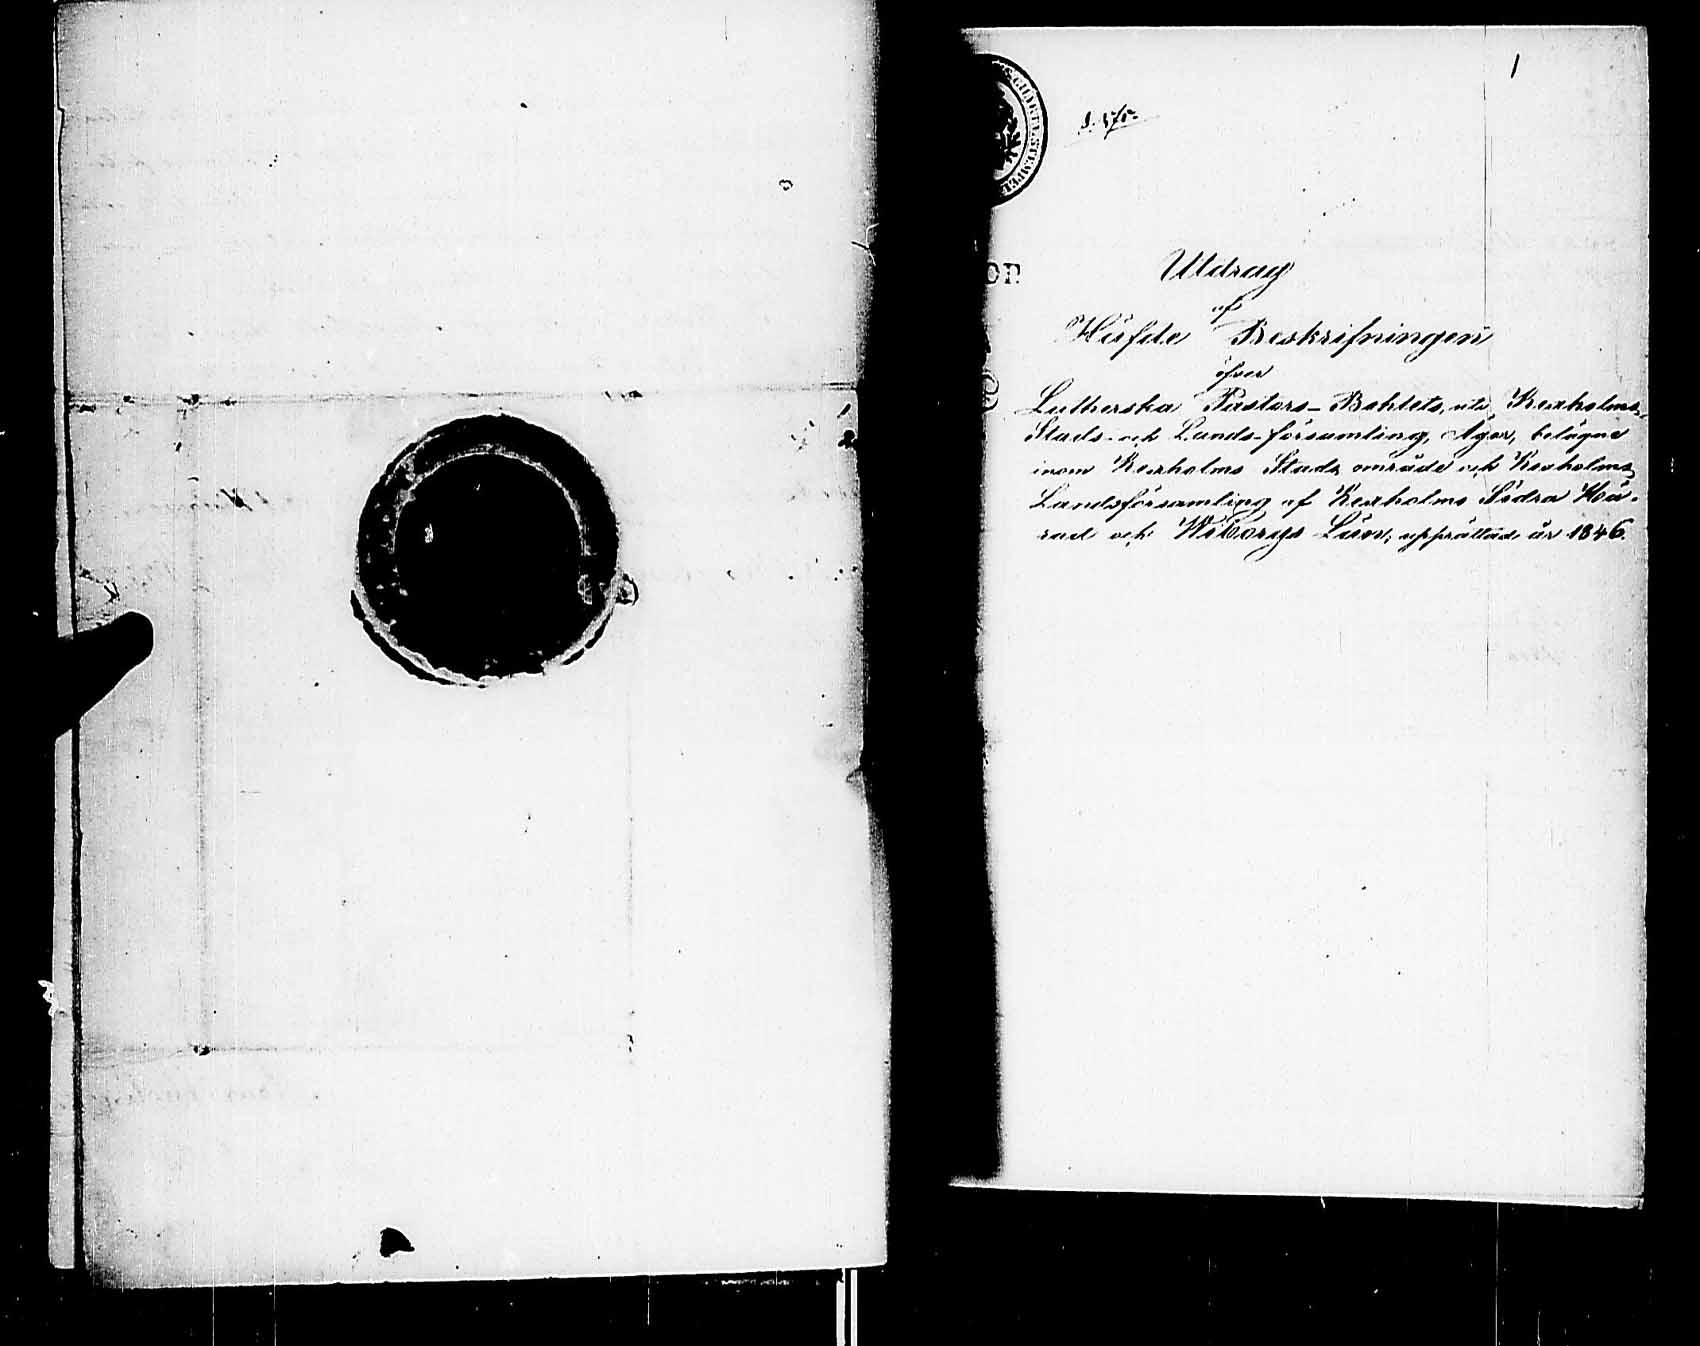 1
Utdrag
af
Häfde Beskrifningen
öfver
Lutherska Pastors-Bohlets, uti Kexholms
Stads- och Lands-församling, Ägor, belägne
inom Kexholms Stads område och Kexholms
Landsförsamling af Kexholms Södra Hä-
rad och Wiborgs Län; upprättad år 1846.